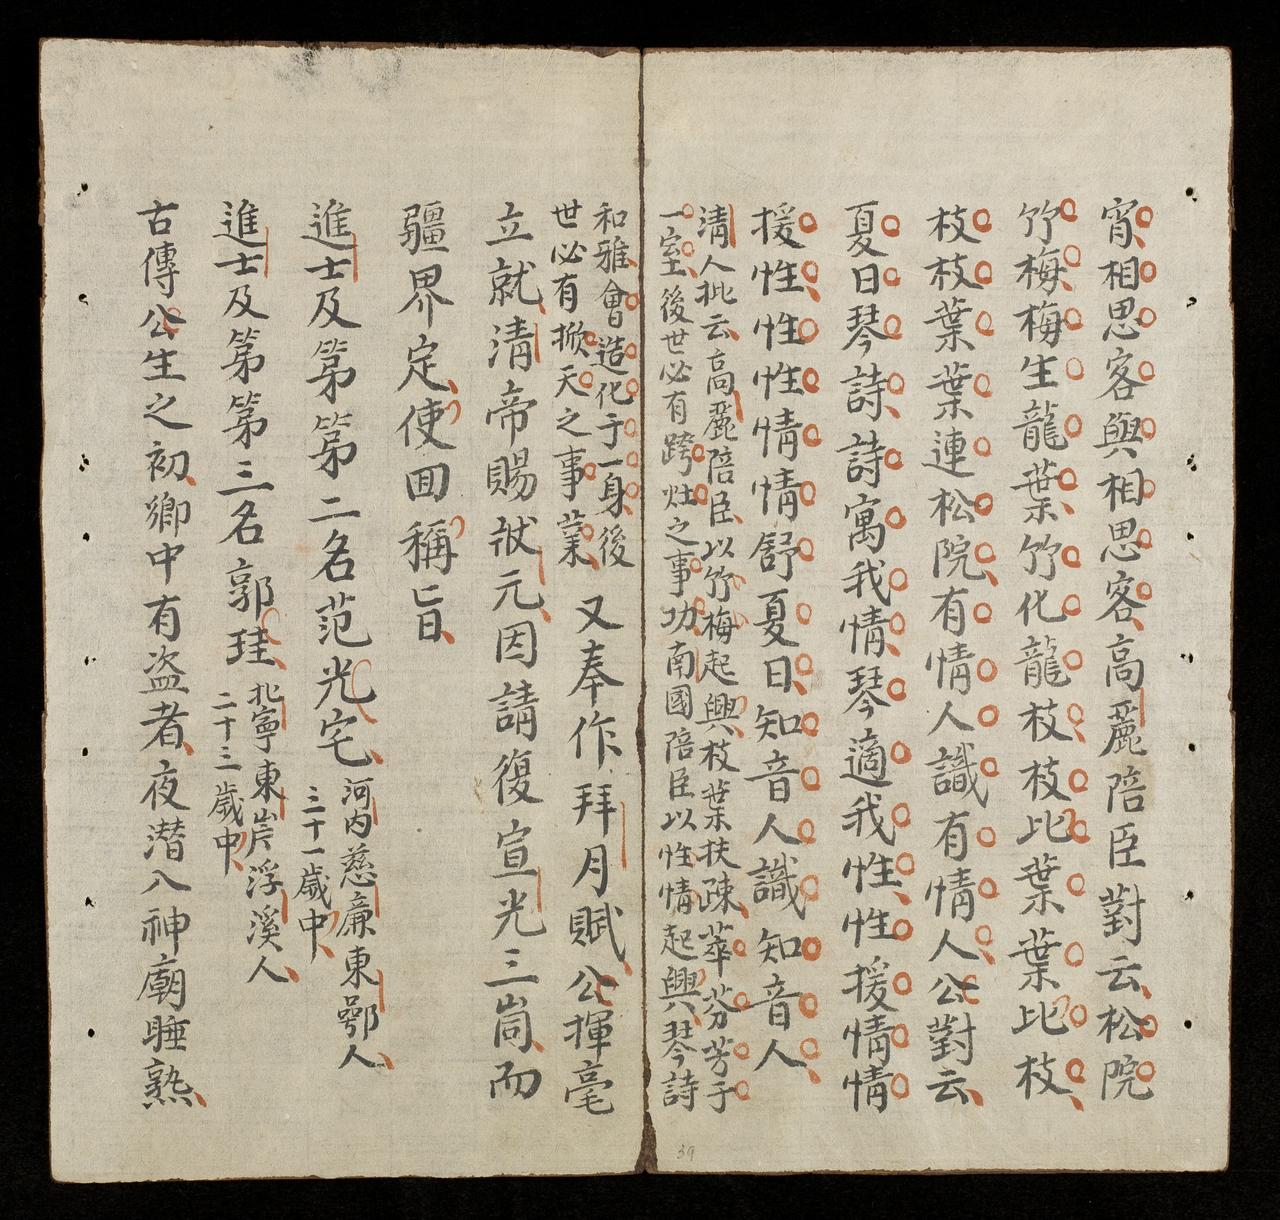 宵相思客與相思客高麗陪臣對云松院
竹梅梅生龍葉竹化龍枝枝比葉葉比枝
枝枝葉葉連松院有情人識有情人公對云
夏日琴詩詩寓我情琴適我性性援情情
援性性性情情舒夏日知音人識知音人
清人批云高麗陪臣以竹梅起興枝葉扶疎萃芬芳于
一室後世必有跨灶之事功南國陪臣以性情起興琴詩
和雅會造化于一身後
世必有掀天之事業
又奉作拜月賦公揮毫
立就清帝賜狀元因請復宣光三峝而
疆界定使回稱旨
進士及第第二名范光宅
河内慈廉東鄂人
三十一歲中
進士及第第三名郭珪
北寧東岸浮溪人
二十三歲中
古傳公生之初鄉中有盗者夜潜入神廟睡熟
39